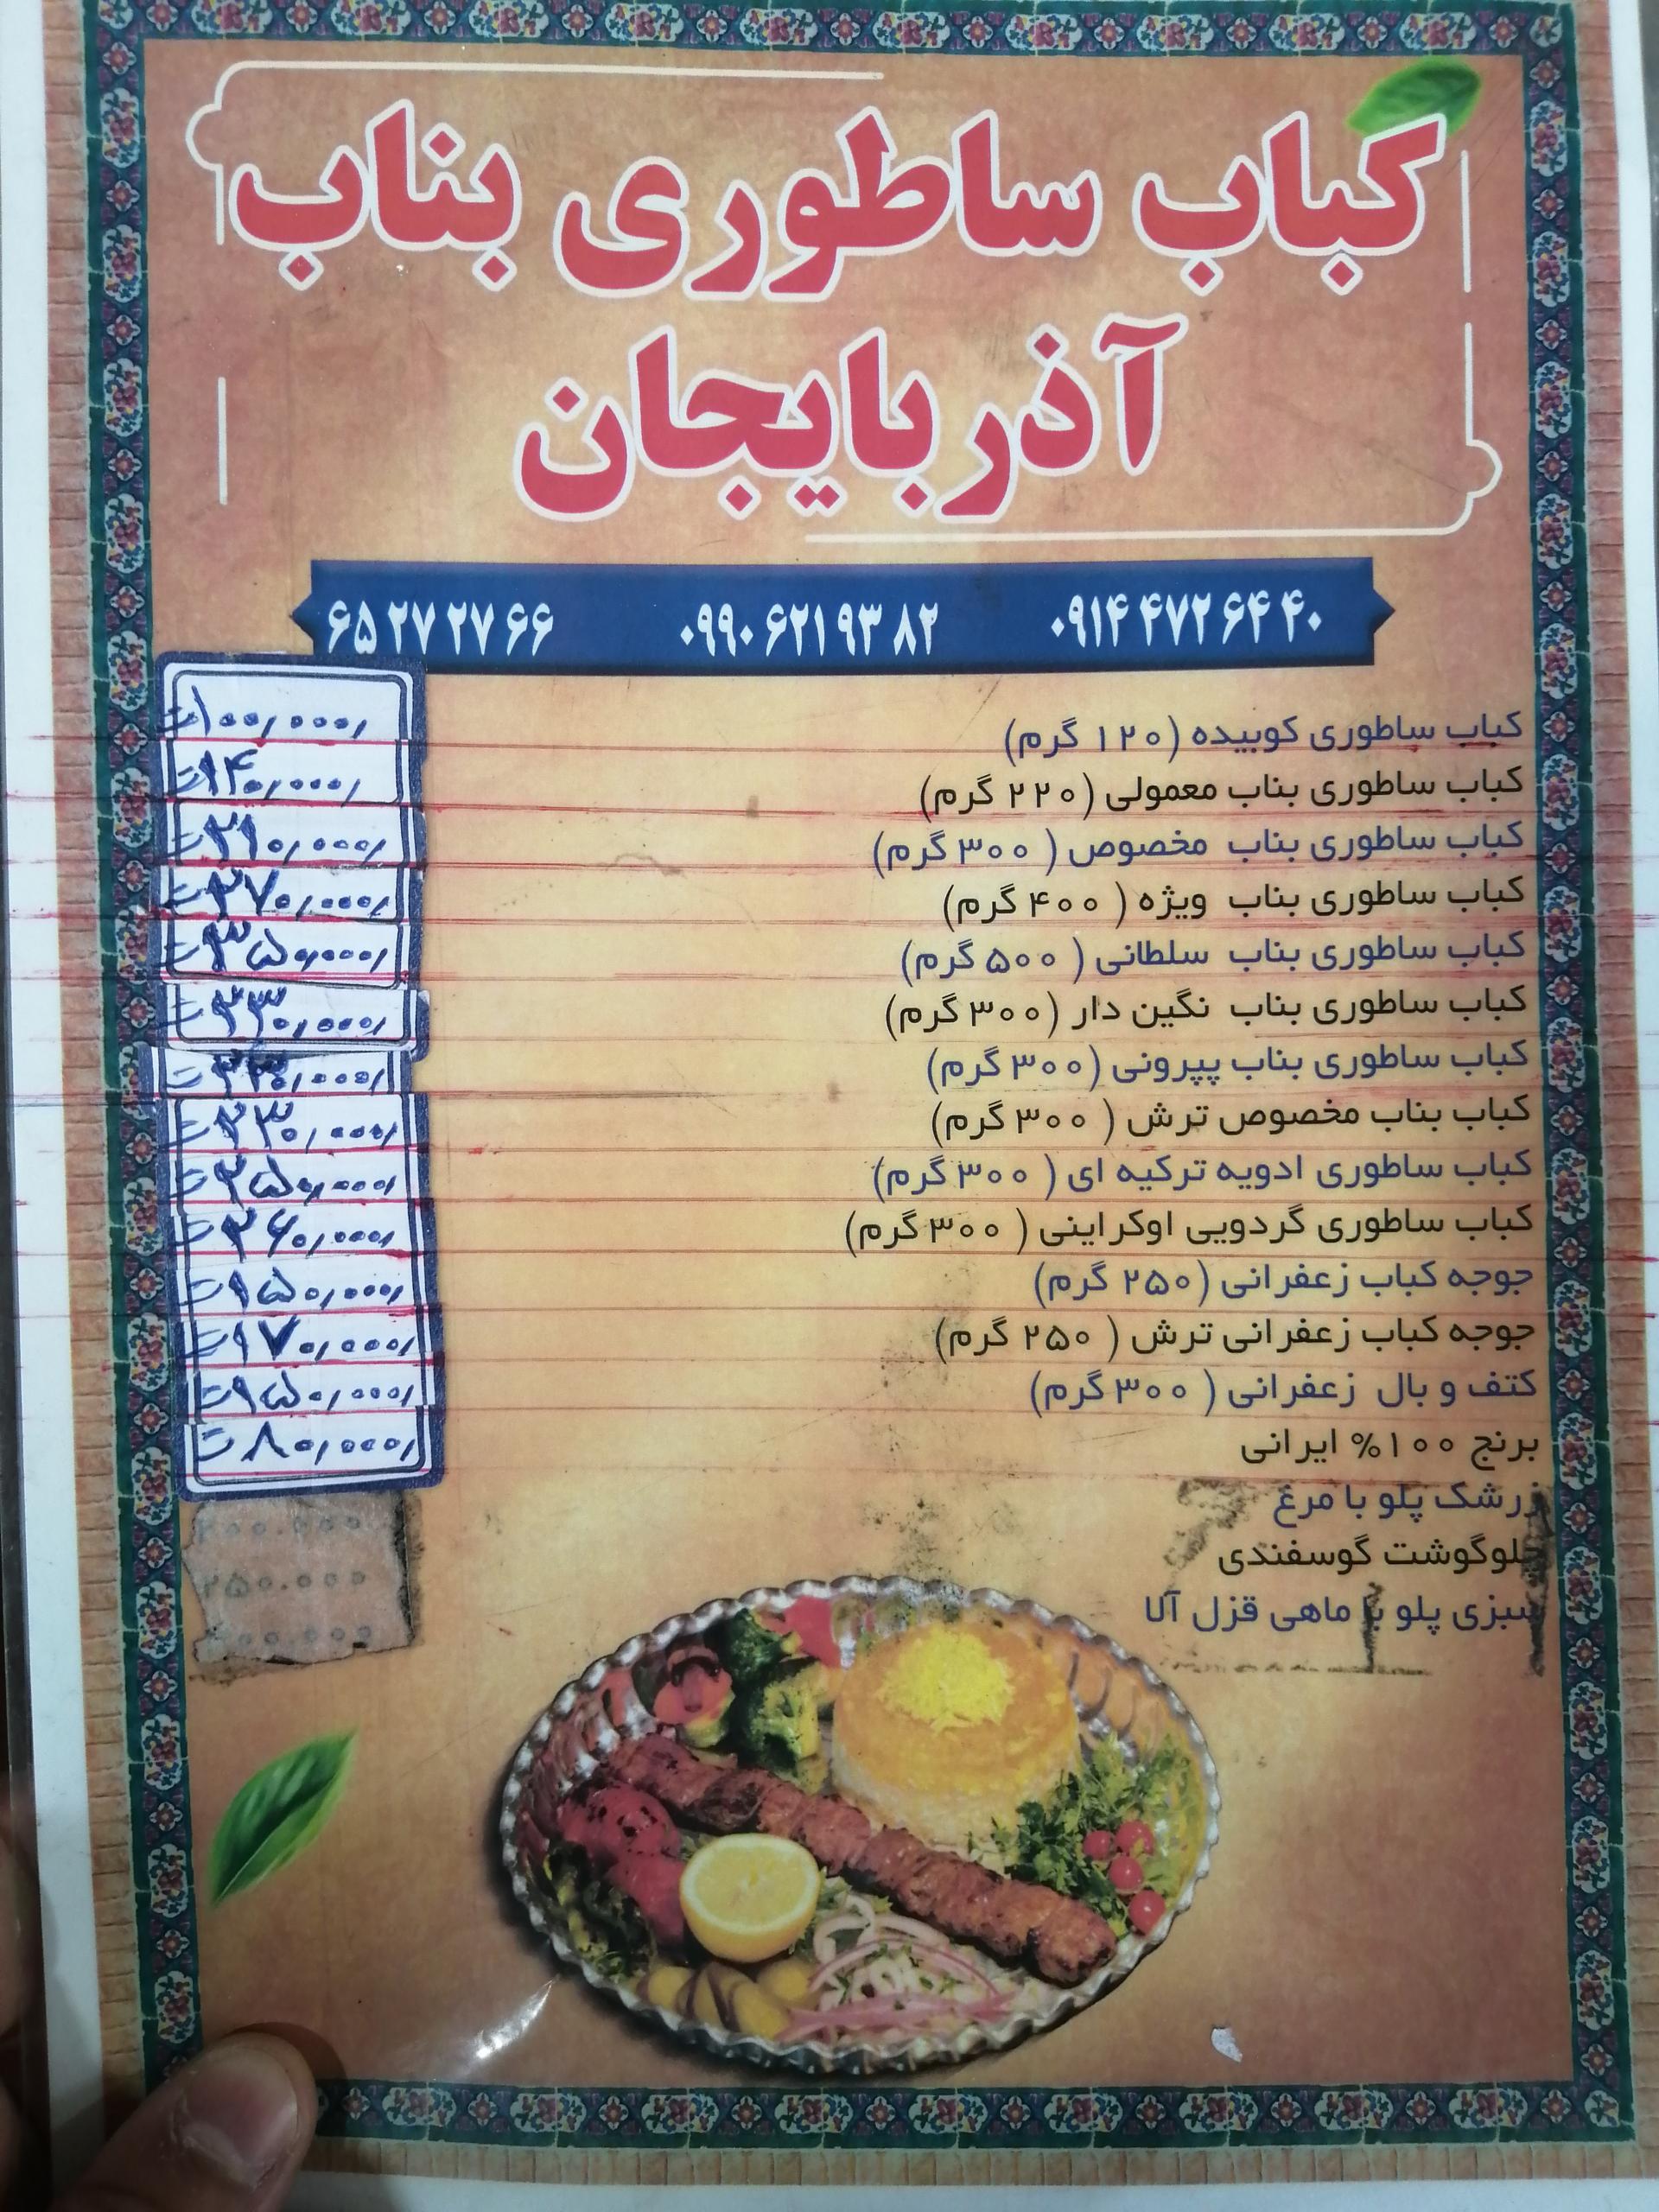 کباب ساطوری بناب
آذربایجان
۰۹۱۴ ۴۷۲ ۶۴ ۴۰ ۰۹۹۰ ۶۲۱ ۹۳ ۸۲ ۶۵ ۲۷ ۲۷ ۶۶
کباب ساطوری کوبیده (۱۲۰ گرم) ۱۰۰,۰۰۰ ت
کباب ساطوری بناب معمولی (۲۲۰ گرم) ۱۴۰,۰۰۰ ت
کباب ساطوری بناب مخصوص ( ۳۰۰ گرم) ۲۱۰,۰۰۰ ت
کباب ساطوری بناب ویژه ( ۴۰۰ گرم) ۲۷۰,۰۰۰ ت
کباب ساطوری بناب سلطانی ( ۵۰۰ گرم) ۳۵۰,۰۰۰ ت
کباب ساطوری بناب نگین دار (۳۰۰ گرم) ۲۳۰,۰۰۰ ت
کباب ساطوری بناب پپرونی (۳۰۰ گرم)
کباب بناب مخصوص ترش ( ۳۰۰ گرم) ۲۳۰,۰۰۰ ت
کباب ساطوری ادویه ترکیه ای ( ۳۰۰ گرم) ۲۵۰,۰۰۰ ت
کباب ساطوری گردویی اوکراینی ( ۳۰۰ گرم) ۲۶۰,۰۰۰ ت
جوجه کباب زعفرانی (۲۵۰ گرم) ۱۵۰,۰۰۰ ت
جوجه کباب زعفرانی ترش ( ۲۵۰ گرم) ۱۷۰,۰۰۰ ت
کتف و بال زعفرانی ( ۳۰۰ گرم) ۱۵۰,۰۰۰ ت
برنج ۱۰۰% ایرانی ۸۰,۰۰۰ ت
زرشک پلو با مرغ ۲۰۰.۰۰۰
چلوگوشت گوسفندی ۲۵۰.۰۰۰
سبزی پلو با ماهی قزل آلا